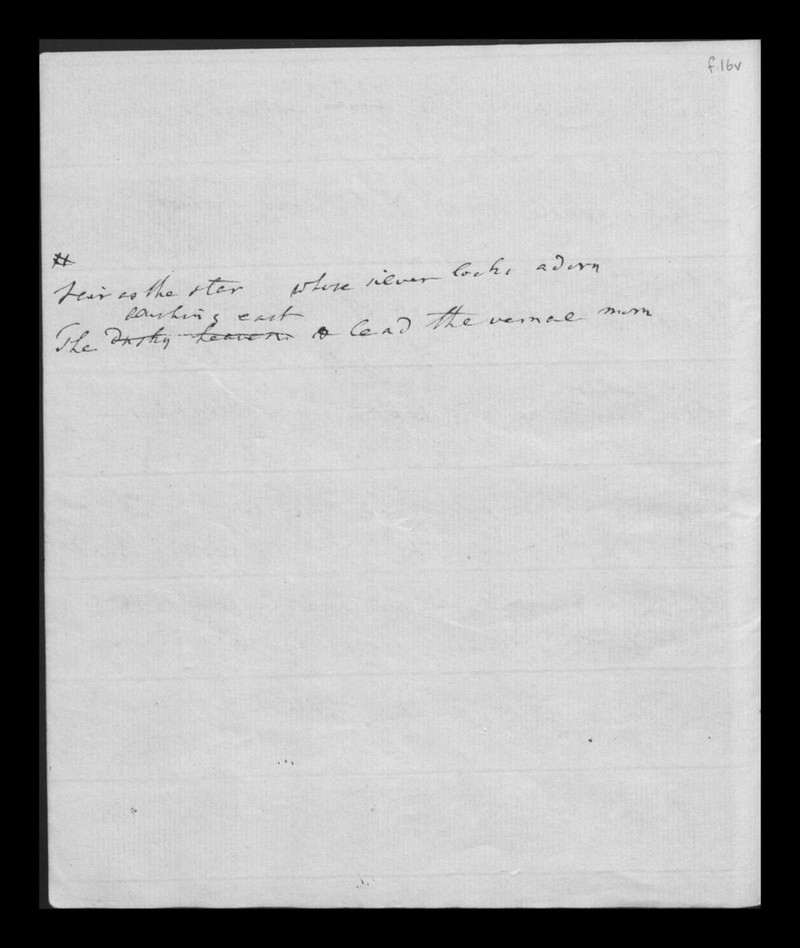 f.16v
#
Fair as the star whose silver locks adorn
blushing east
The dusky heaven & lead the vernal morn